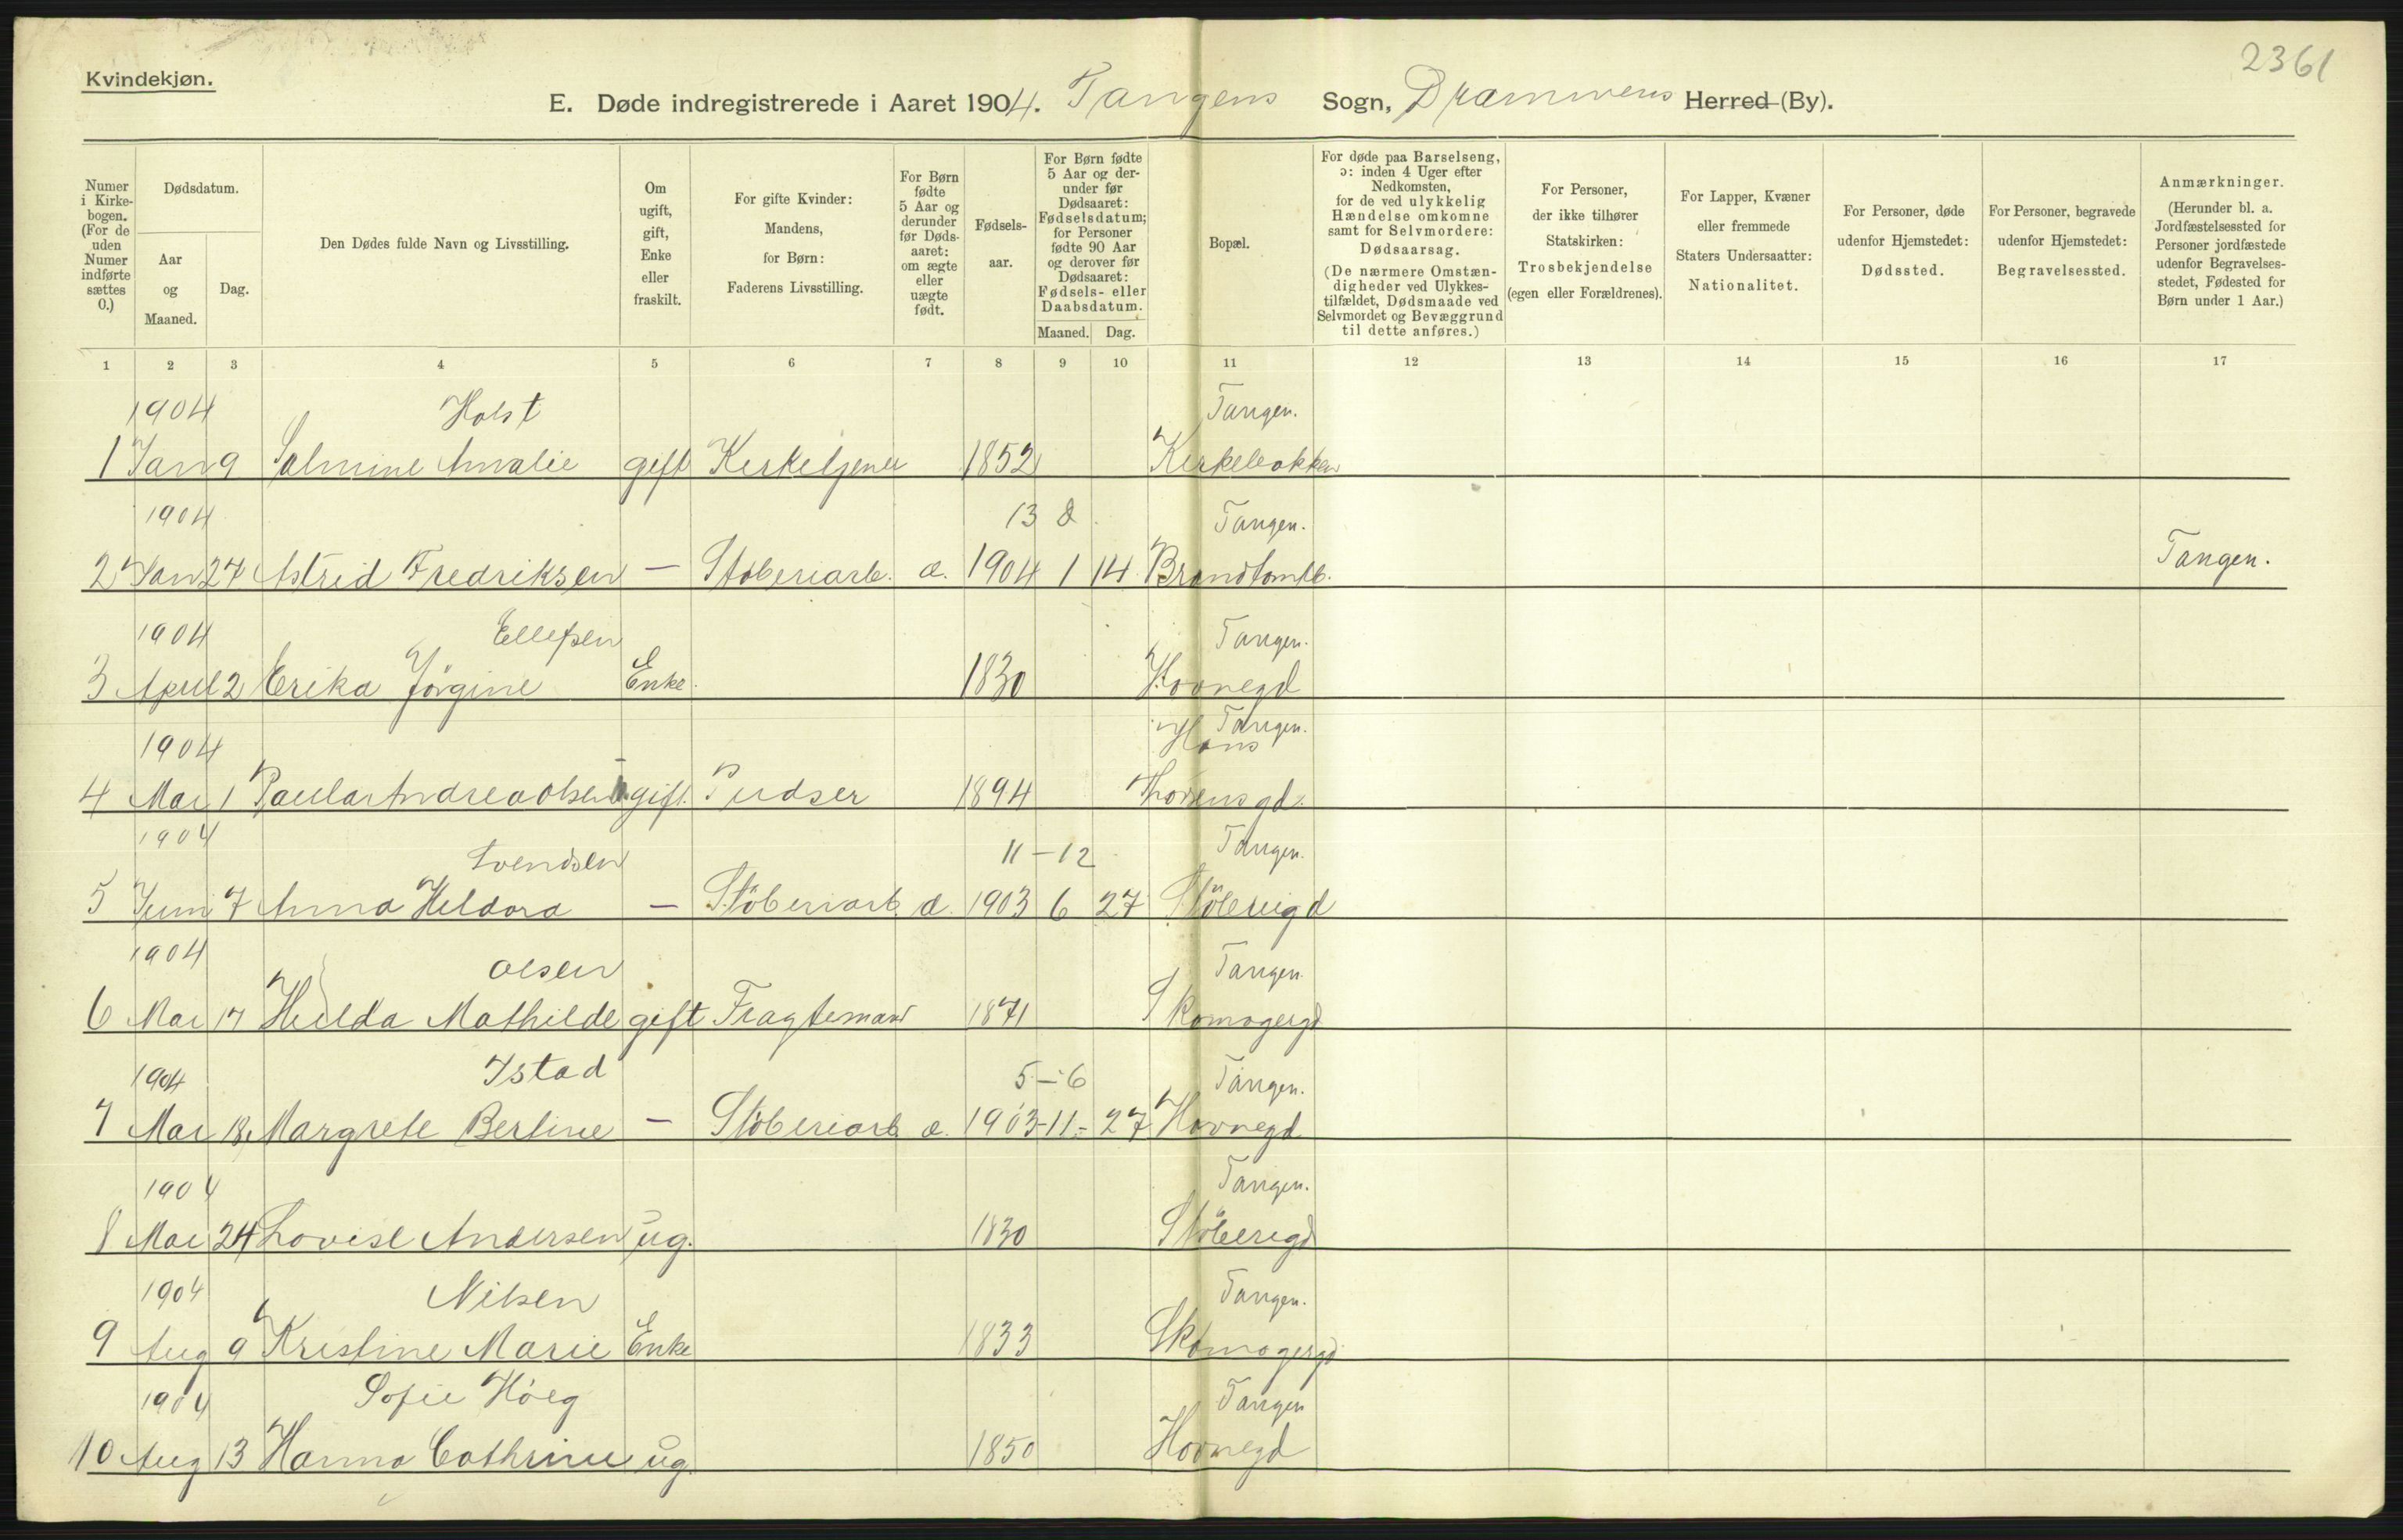 2361
Kvindekjøn.
E. Døde indregistrerede i Aaret 1904. Tangens Sogn, Drammens Herred (By).
Numer i Kirke-bogen. (For de uden Numer indførte sættes 0.)
Dødsdatum.
Aar og Maaned.
Dag.
Den Dødes fulde Navn og Livsstilling.
Om ugift, gift, Enke eller fraskilt.
For gifte Kvinder: Mandens, for Børn: Faderens Livsstilling.
For Børn fødte 5 Aar og derunder før Døds-aaret: om ægte eller uægte født.
Fødsels-aar.
For Børn fødte 5 Aar og der-under før Dødsaaret: Fødselsdatum; for Personer fødte 90 Aar og derover før Dødsaaret: Fødsels- eller Daabsdatum.
Maaned. Dag.
Bopæl.
For døde paa Barselseng, ɔ: inden 4 Uger efter Nedkomsten, for de ved ulykkelig Hændelse omkomne samt for Selvmordere: Dødsaarsag. (De nærmere Omstæn-digheder ved Ulykkes-tilfældet, Dødsmaade ved Selvmordet og Bevæggrund til dette anføres.)
For Personer, der ikke tilhører Statskirken: Trosbekjendelse (egen eller Forældrenes).
For Lapper, Kvæner eller fremmede Staters Undersaatter: Nationalitet.
For Personer, døde udenfor Hjemstedet: Dødssted.
For Personer, begravede udenfor Hjemstedet: Begravelsessted.
Anmærkninger. (Herunder bl. a. Jordfæstelsessted for Personer jordfæstede udenfor Begravelses-stedet, Fødested for Børn under 1 Aar.)
1 2 3 4 5 6 7 8 9 10 11 12 13 14 15 16 17
1904 Holst Tangen.
1 Jan 9 Salmine Amalie gift Kirketjener 1852 Kirkebakken
1904 13 d. Tangen.
2 Jan 27 Astrid Fredriksen — Støberiarb. æ. 1904 1 14 Brandtomtb. Tangen.
1904 Ellefsen Tangen.
3 April 2 Erika Jörgine Enke. 1830 Havnegd
1904 Tangen. Hans
4 Mai 1 Paula Andrea Olsen ugift. Pudser 1894 Thorsensgd.
1904 Svendsen 11 – 12 Tangen.
5 Juni 7 Anna Heldora — Stöberiarb æ. 1903 6 27 Stöberigd
1904 Olsen Tangen
6 Mai 17 Hulda Mathilde gift Fragtemand 1871 Skomagergd
1904 Istad 5 – 6 Tangen.
7 Mai 18. Margrete Bertine — Stöberiarb æ. 1903-11- 27 Havnegd
1904 Tangen.
8 Mai 24 Lovise Andersen ug. 1830 Stöberigd
1904 Nilsen Tangen.
9 Aug 9 Kristine Marie Enke 1833 Skomagergd
1904 Sofie Höeg Tangen
10 Aug 13 Hanna Cathrine ug. 1850 Havnegd